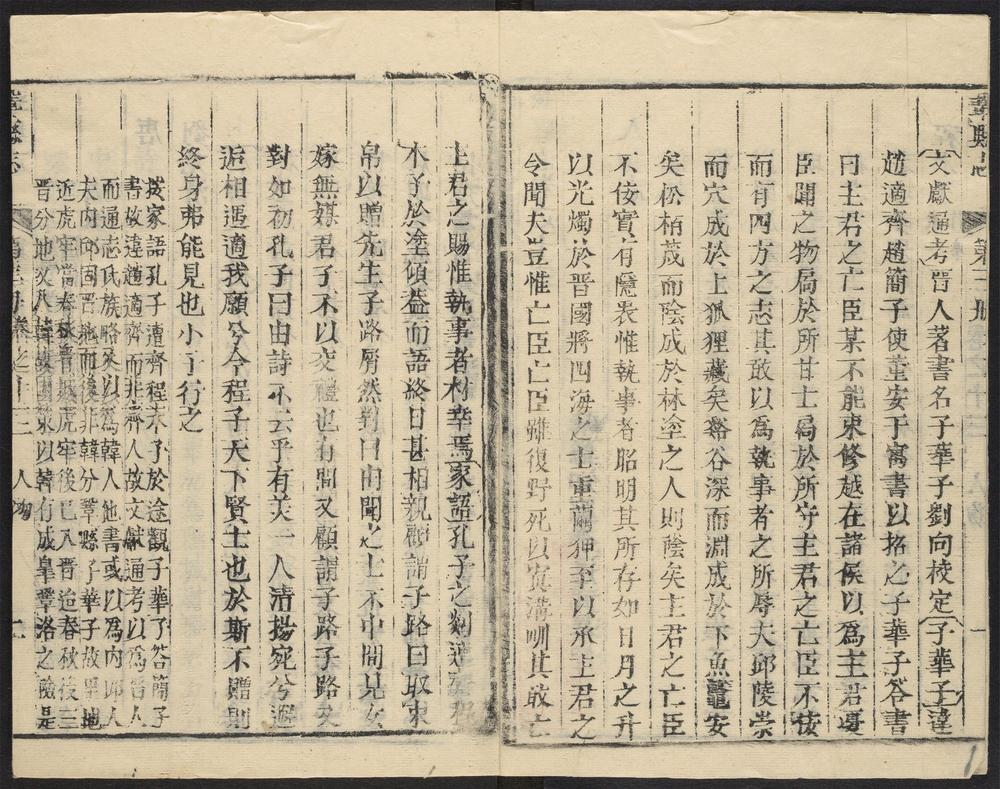 鞏縣志
文獻通考晉人著書名子華子劉向校定子華子違
趙適齊趙簡子使董安于寓書以招之子華子答書
曰主君之亡臣某不能束修越在諸侯以為主君憂
臣聞之物局於所甘士局於所守主君之亡臣不佞
而有四方之志其敢以為執事者之所辱夫邱陵崇
而穴成於上狐狸藏矣谿谷深而淵成於下魚鼈安
矣松柏茂而陰成於林塗之人則陰矣主君之亡臣
不佞實有隱衷惟執事者昭明其所存如日月之升
以光燭於晉國將四海之士重繭狎至以承主君之
令聞夫豈惟亡臣亡臣雖復野死以寘溝壑其敢亡
主君之賜惟執事者材幸焉家語孔子之郯遇程
木子於塗傾蓋而語終日甚相親顧謂子路曰取束
帛以贈先生子路屑然對曰由聞之士不中間見女
嫁無媒君子不以交禮也有間又顧謂子路子路又
對如初孔子曰由詩不云乎有美一人清揚宛兮邂
逅相遇適我願兮今程子天下賢士也於斯不贈則
終身弗能見也小子行之
按家語孔子遭齊程木子於途觀子華子答簡子
書故違趙適齊而非齊人故文獻通考以為晉人
而通志氏族略箋以為韓人他書或以為內邱人
夫內邱固晉地而後非韓分鞏縣子華子故里地
近虎牢當春秋晉城虎牢後已入晉迨春秋後三
晉分地又入韓故國策以韓有成皋鞏洛之險是
鞏縣志
卷之十三
人物
二